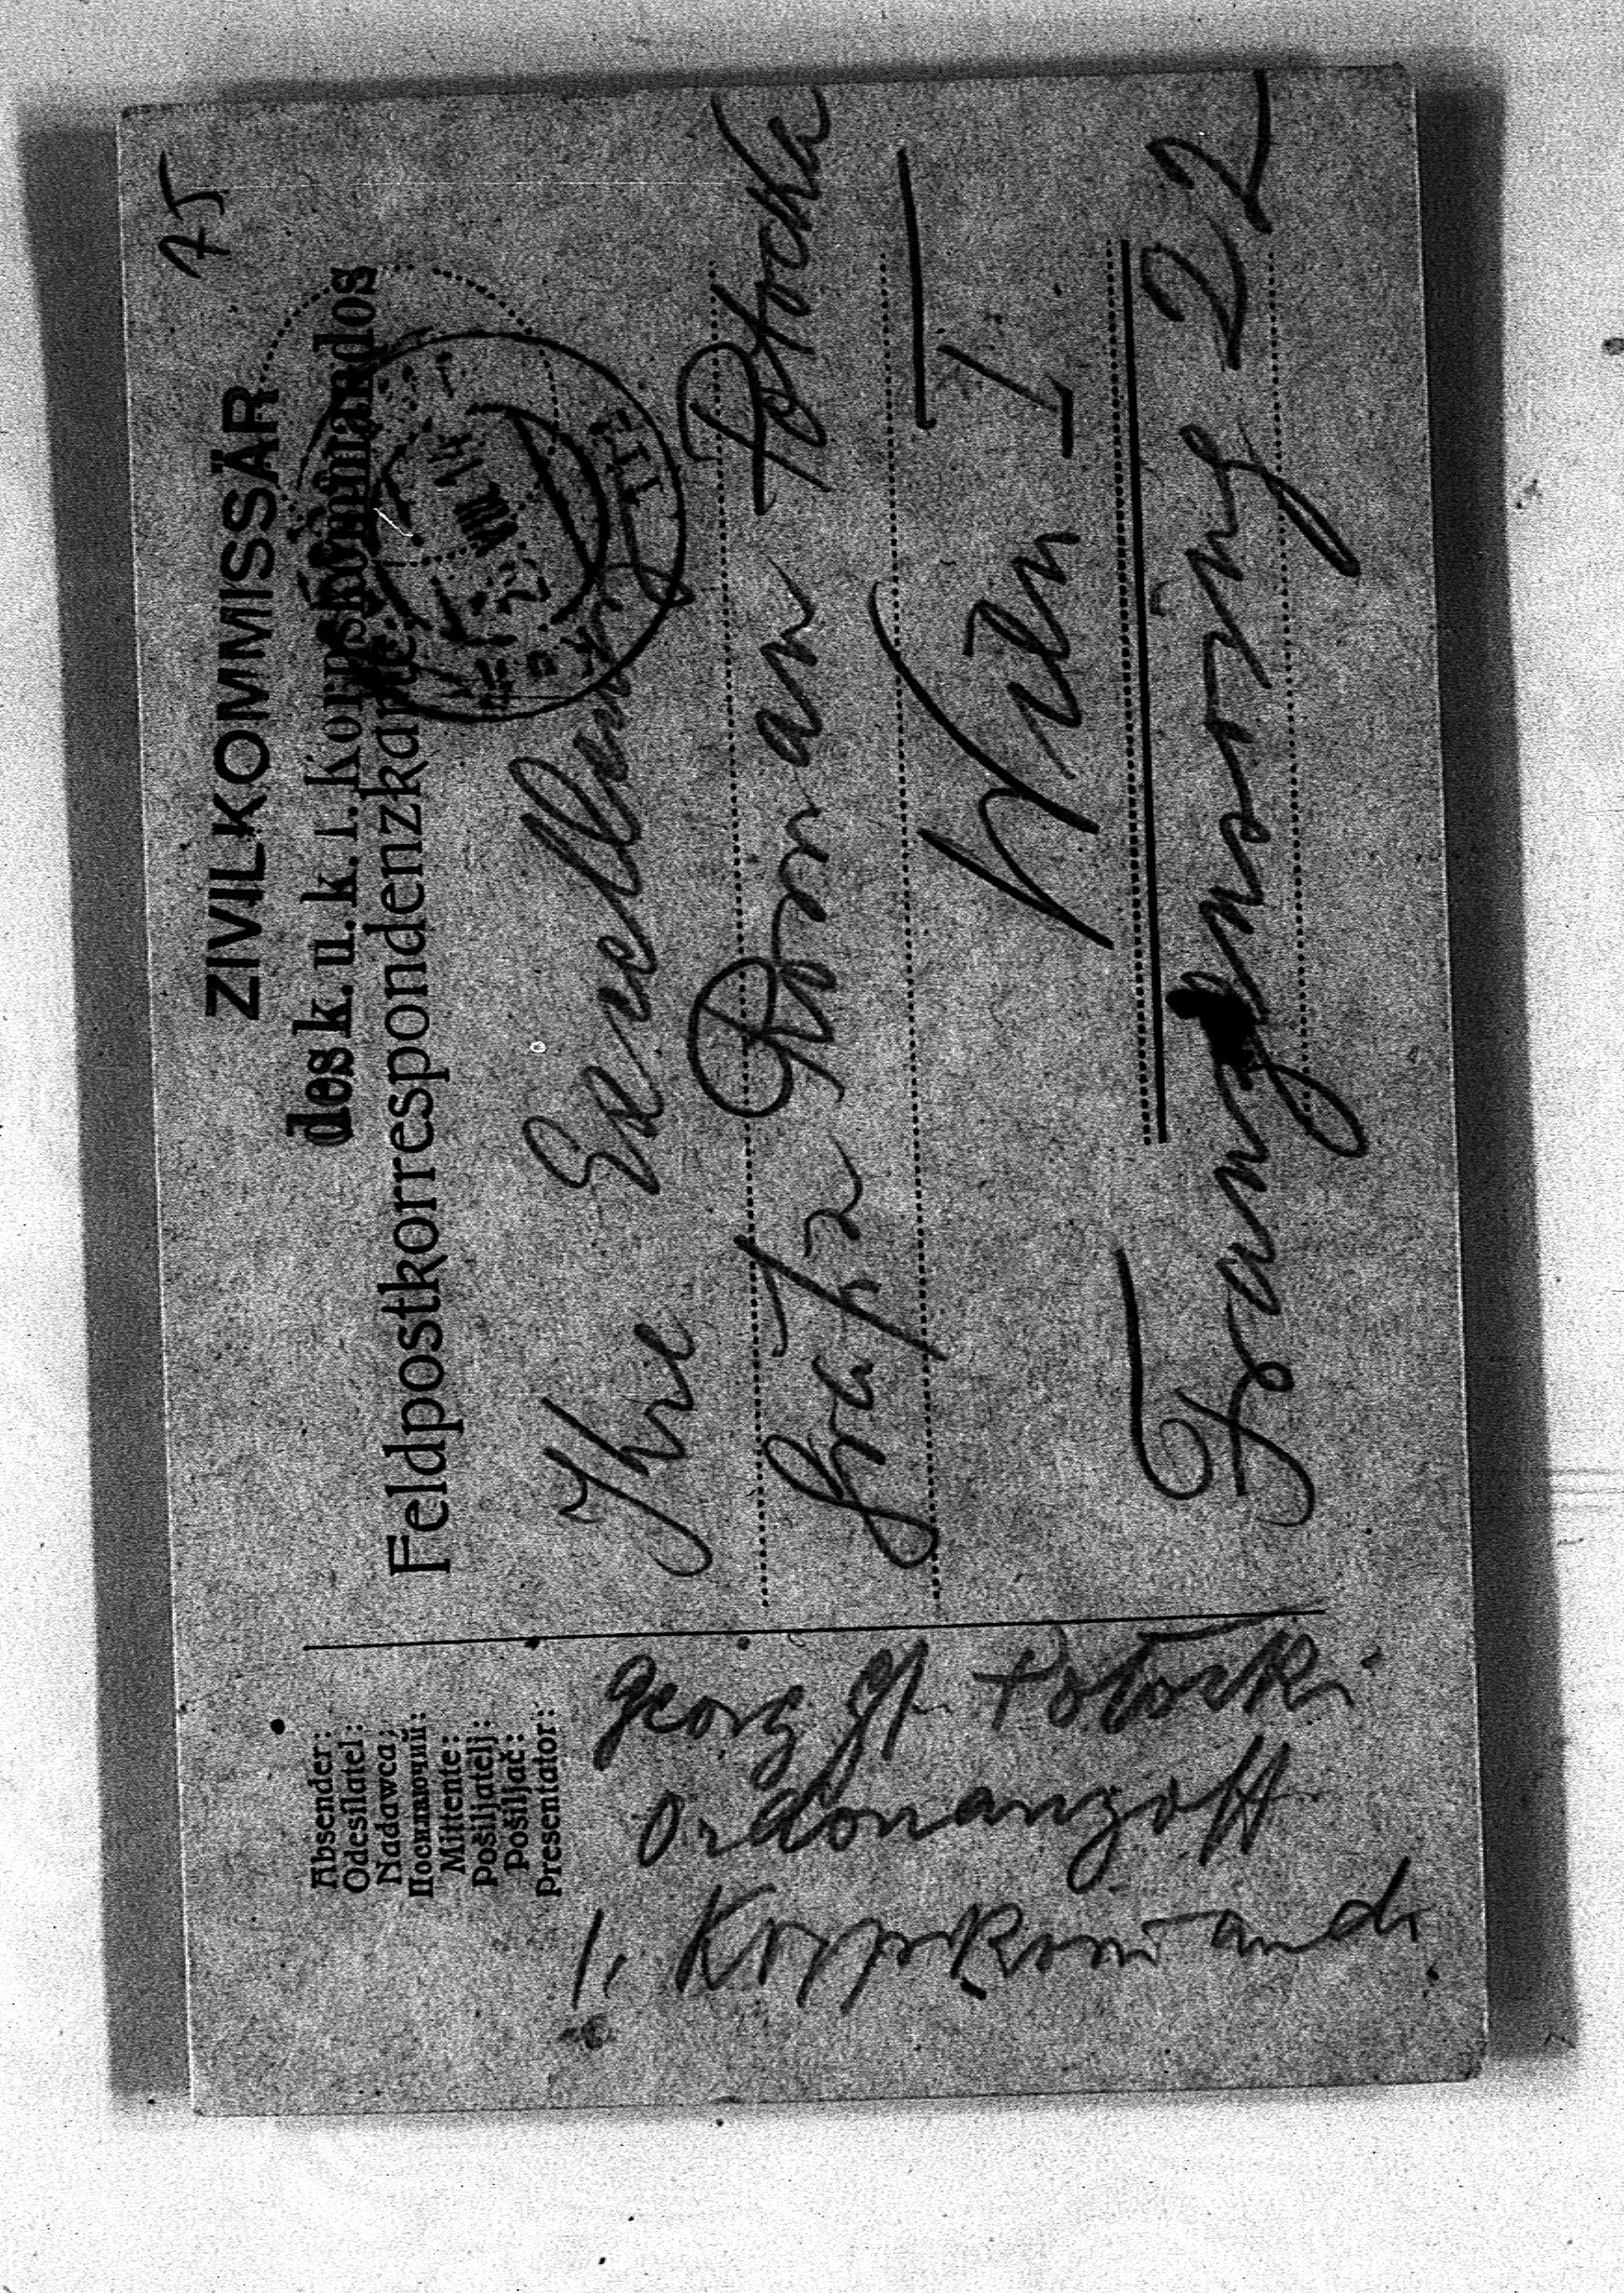 75
ZIVILKOMMISSÄR
des k. u. k. 1. Korpskommandos
Feldpostkorrespondenzkarte.
Ihre Excellenz
Gräfin Roman Potocka
Wien I
Franzensring 22
Absender:
Odesílatel:
Nadawca:
Посилаючий:
Mittente:
Pošiljatelj:
Pošiljač:
Presentator:
Georg Gf. Potocki
Ordonanzoff
1. Korpskomando
VIII 14